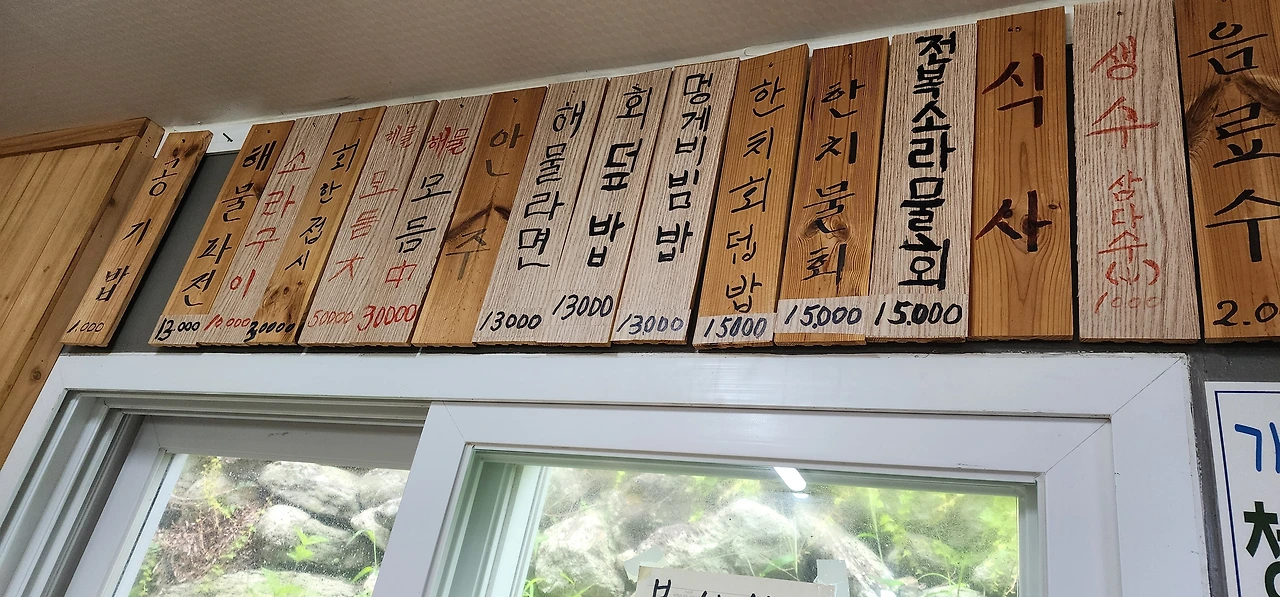 공기밥
1.000
해물파전
12.000
소라구이
10.000
회한접시
30000
해물
모듬
大
50000
해물
모듬
中
30000
안주
해물라면
13000
회덮밥
13000
멍게비빔밥
13000
한치회덮밥
15000
한치물회
15.000
전복소라물회
15.000
식사
생수
삼다수(小)
1000
음료수
2.0